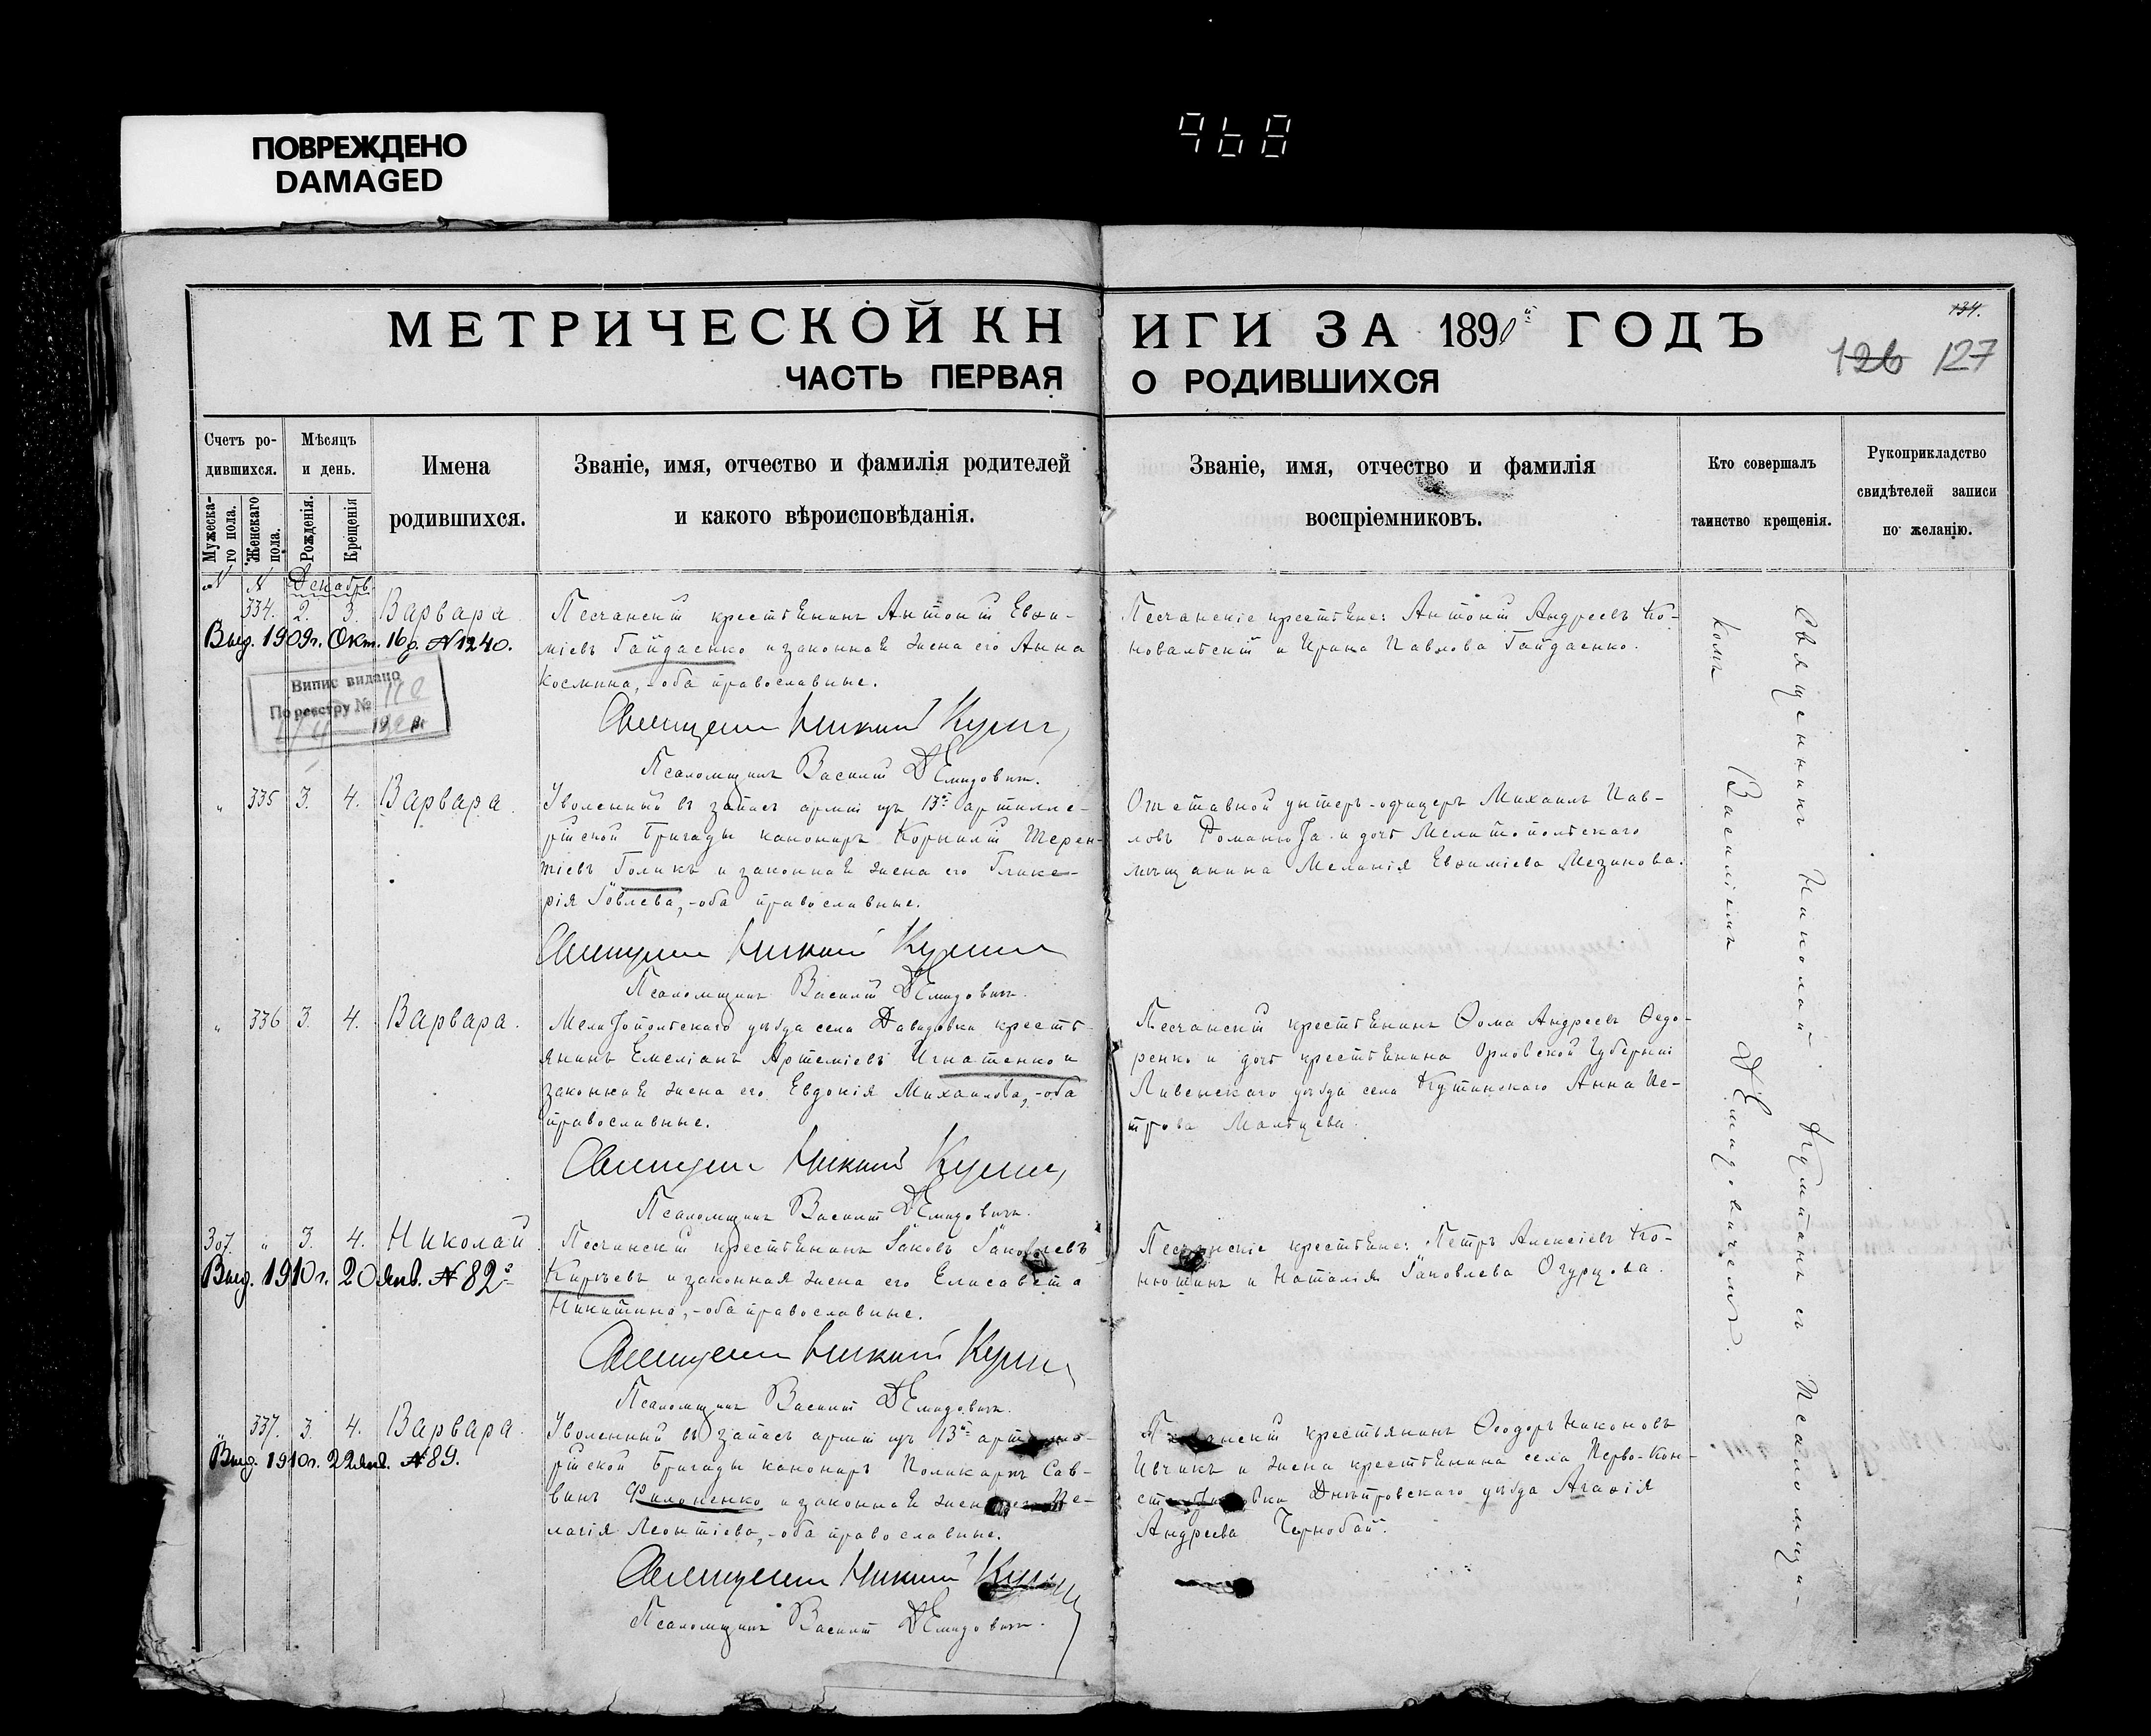 ПОВРЕЖДЕНО
DAMAGED
968
МЕТРИЧЕСКОЙ КНИГИ ЗА 1890й ГОДЪ
ЧАСТЬ ПЕРВАЯ О РОДИВШИХСЯ
134.
126 127
Счетъ ро-
дившихся.
Мужеска-
го пола.
Женскаго
пола.
Мѣсяцъ
и день.
Рожденія.
Крещенія
Имена
родившихся.
Званіе, имя, отчество и фамилія родителей
и какого вѣроисповѣданія.
Званіе, имя, отчество и фамилія
воспріемниковъ.
Кто совершалъ
таинство крещенія.
Рукоприкладство
свидѣтелей записи
по желанію.
№ № Декабрь
334. 2. 3. Варвара
Выд. 1909г. Окт. 16 д. №1240.
Випис видано
По реєстру №
Песчанскій крестьянинъ Антоній Евѳи-
міевъ Гайдаенко и законная жена его Анна
Космина, - оба православные.
Священникъ Николай
Псаломщикъ Василій Демидовичъ.
Песчанскіе крестьяне: Антоній Андреевъ Ко-
новальскій и Ирина Павлова Гайдаенко.
" 335 3. 4. Варвара.
Уволенный въ запасъ арміи изъ 13й артилле-
рійской бригады канониръ Корнилій Терен-
тіевъ Голикъ и законная жена его Глике-
рія Іовлева, - оба православные.
Священникъ Николай
Псаломщикъ Василій Демидовичъ.
Отставной унтеръ-офицеръ Михаилъ Пав-
ловъ Романюга и дочь Мелитопольскаго
мѣщанина Меланія Евѳиміева Мезинова.
" 336 3. 4. Варвара.
Мелитопольскаго уѣзда села Давыдовки кресть-
янинъ Емеліанъ Артеміевъ Игнатенко и
законная жена его Евдокія Михаилова, - оба
православные.
Священникъ Николай
Псаломщикъ Василій Демидовичъ.
Песчанскій крестьянинъ Ѳома Андреевъ Ѳедо-
ренко и дочь крестьянина Орловской Губерніи
Ливенскаго уѣзда села Кутинскаго Анна Пе-
трова Мальцева.
307. " 3. 4. Николай.
Выд. 1910г. 20 Янв. №82.
Песчанскій крестьянинъ Іаковъ Іаковлевъ
Кирѣевъ и законная жена его Елисавета
Никитина, - оба православные.
Священникъ Николай
Псаломщикъ Василій Демидовичъ.
Песчанскіе крестьяне: Петръ Алексіевъ Ко-
нюшинъ и Наталія Іаковлева Огурцова.
" 337. 3. 4. Варвара.
Выд. 1910г. 22 Янв. №89.
Уволенный въ запасъ арміи изъ 13й артилле-
рійской бригады канониръ Поликарпъ Сав-
винъ Филоненко и законная жена его Пе-
лагія Леонтіева, - оба православные.
Священникъ Николай
Псаломщикъ Василій Демидовичъ.
Песчанскій крестьянинъ Ѳеодоръ Никоновъ
Ивчикъ и жена крестьянина села Перво-Кон-
стантиновки Днѣпровскаго уѣзда Агаѳія
Андреева Чернобай.
Священникъ Николай съ Псаломщи-
комъ Василіемъ Демидовичемъ.